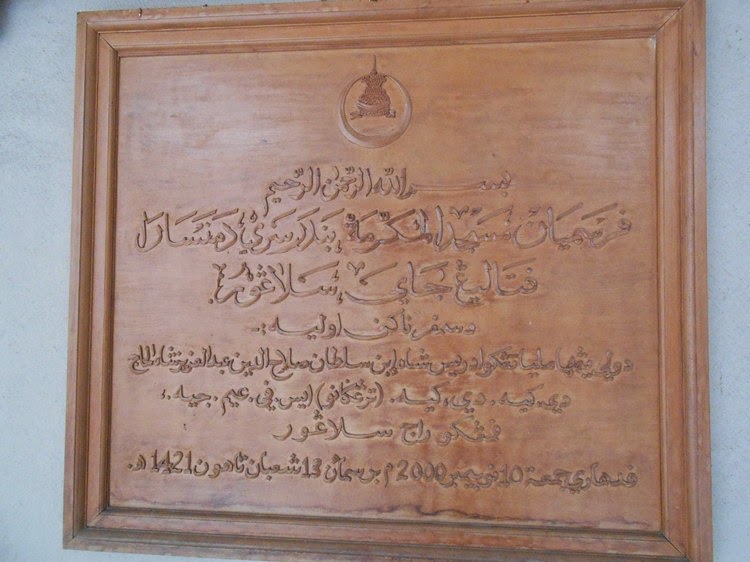 بسم الله الرحمن الرحيم
فرسميان مسجد المكرمة بندر سري دامنسارا
فتاليڠ جاي، سلاڠور.
دسمفرناكن اوليه:-
دولي يڠمها مليا تڠكو ادريس شاه ابن سلطان صلاح الدين عبدالعزيز شاه الحاج
دي. كيه. دي، كيه. (ترڠڬانو) ايس. في. عيم. جيه.؛
فمڠكو راج سلاڠور
فد هاري جمعة 10 نوۏيمبر 2000م برسمأن 13 شعبان تاهون 1421هـ.